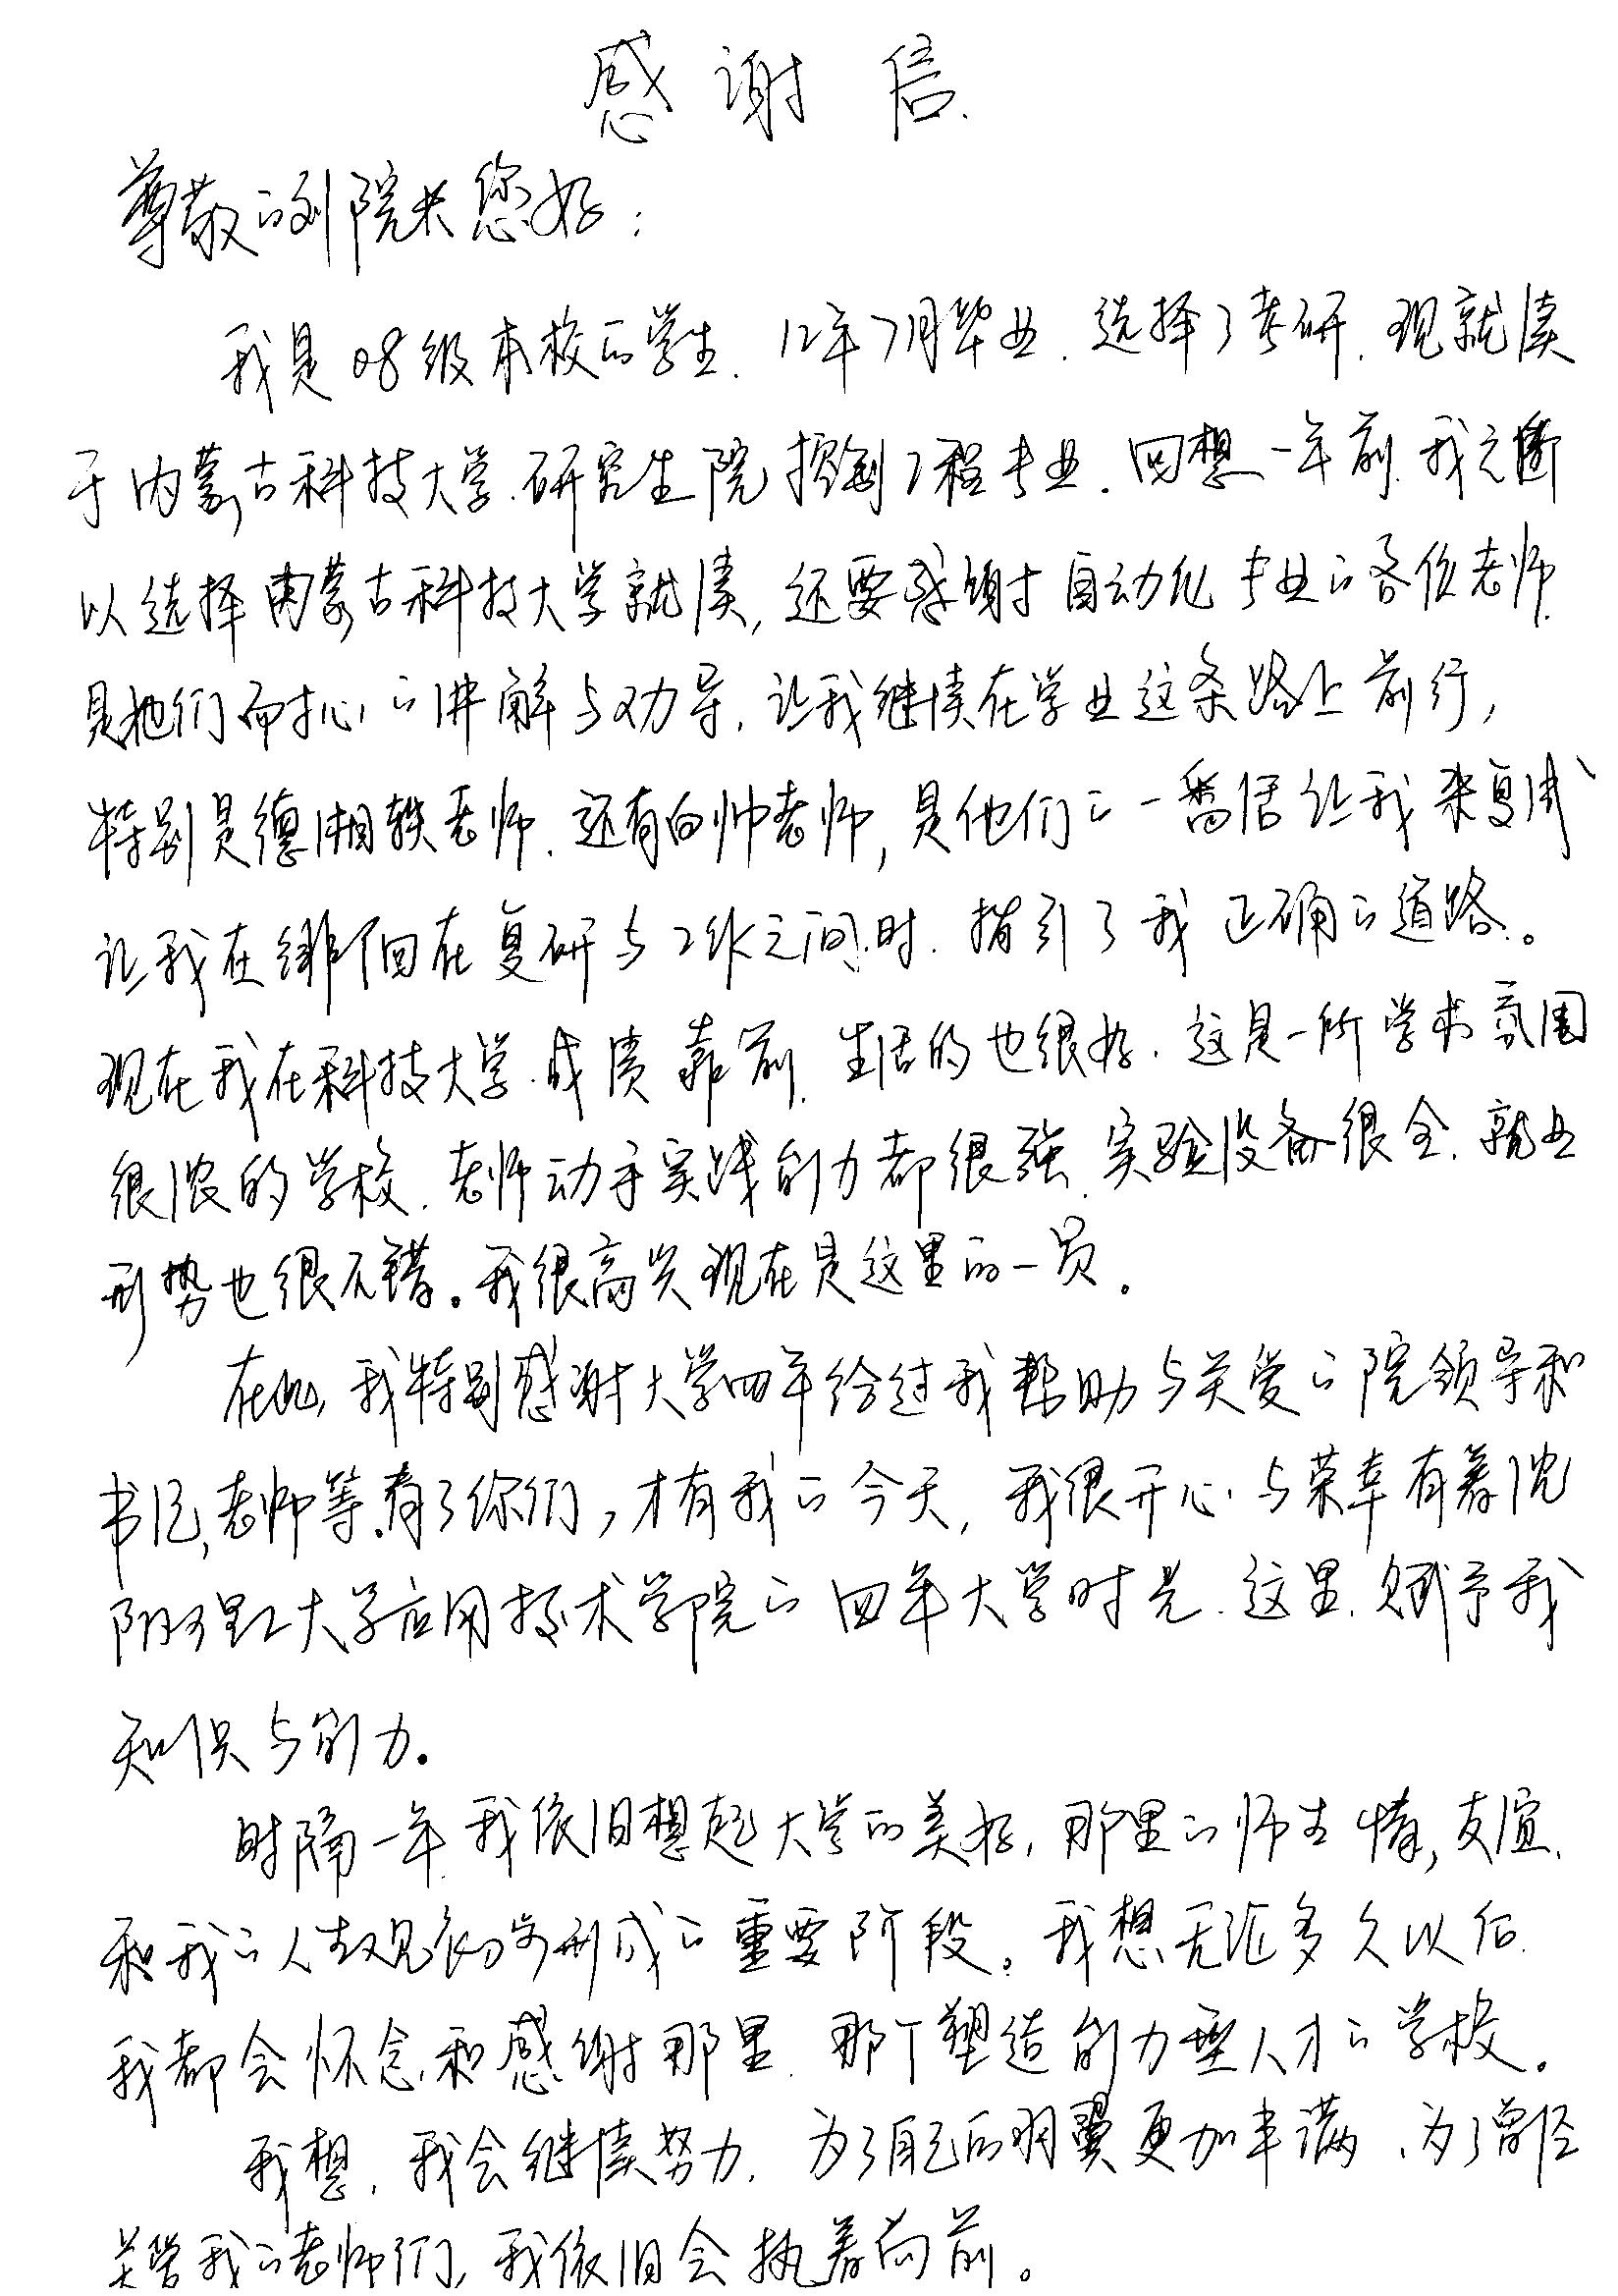 感谢信.
尊敬的刘院长您好:
我是08级本校的学生. 12年7月毕业. 选择了考研. 现就读
于内蒙古科技大学.研究生院控制工程专业. 回想一年前.我之所
以选择内蒙古科技大学就读, 还要感谢自动化专业的各位老师.
是他们耐心的讲解与劝导. 让我继续在学业这条路上前行,
特别是德湘轶老师. 还有白帅老师, 是他们的一番话让我来复试
让我在徘徊在复研与工作之间.时. 指引了我正确的道路.。
现在我在科技大学.成绩靠前. 生活的也很好. 这是一所学术氛围
很浓的学校. 老师动手实践能力都很强. 实验设备很全. 就业
形势也很不错。我很高兴现在是这里的一员.
在此, 我特别感谢大学四年给过我帮助与关爱的院领导和
书记, 老师等.有了你们, 才有我的今天, 我很开心.与荣幸有着沈
阳理工大学应用技术学院的四年大学时光. 这里. 赋予我
知识与能力.
时隔一年.我依旧想起大学的美好, 那里的师生情, 友谊.
和我的人生观初步形成的重要阶段. 我想无论多久以后.
我都会怀念.和感谢那里. 那个塑造能力型人才的学校.
我想, 我会继续努力. 为了自己的羽翼更加丰满、为了曾经
关爱我的老师们, 我依旧会执着向前。